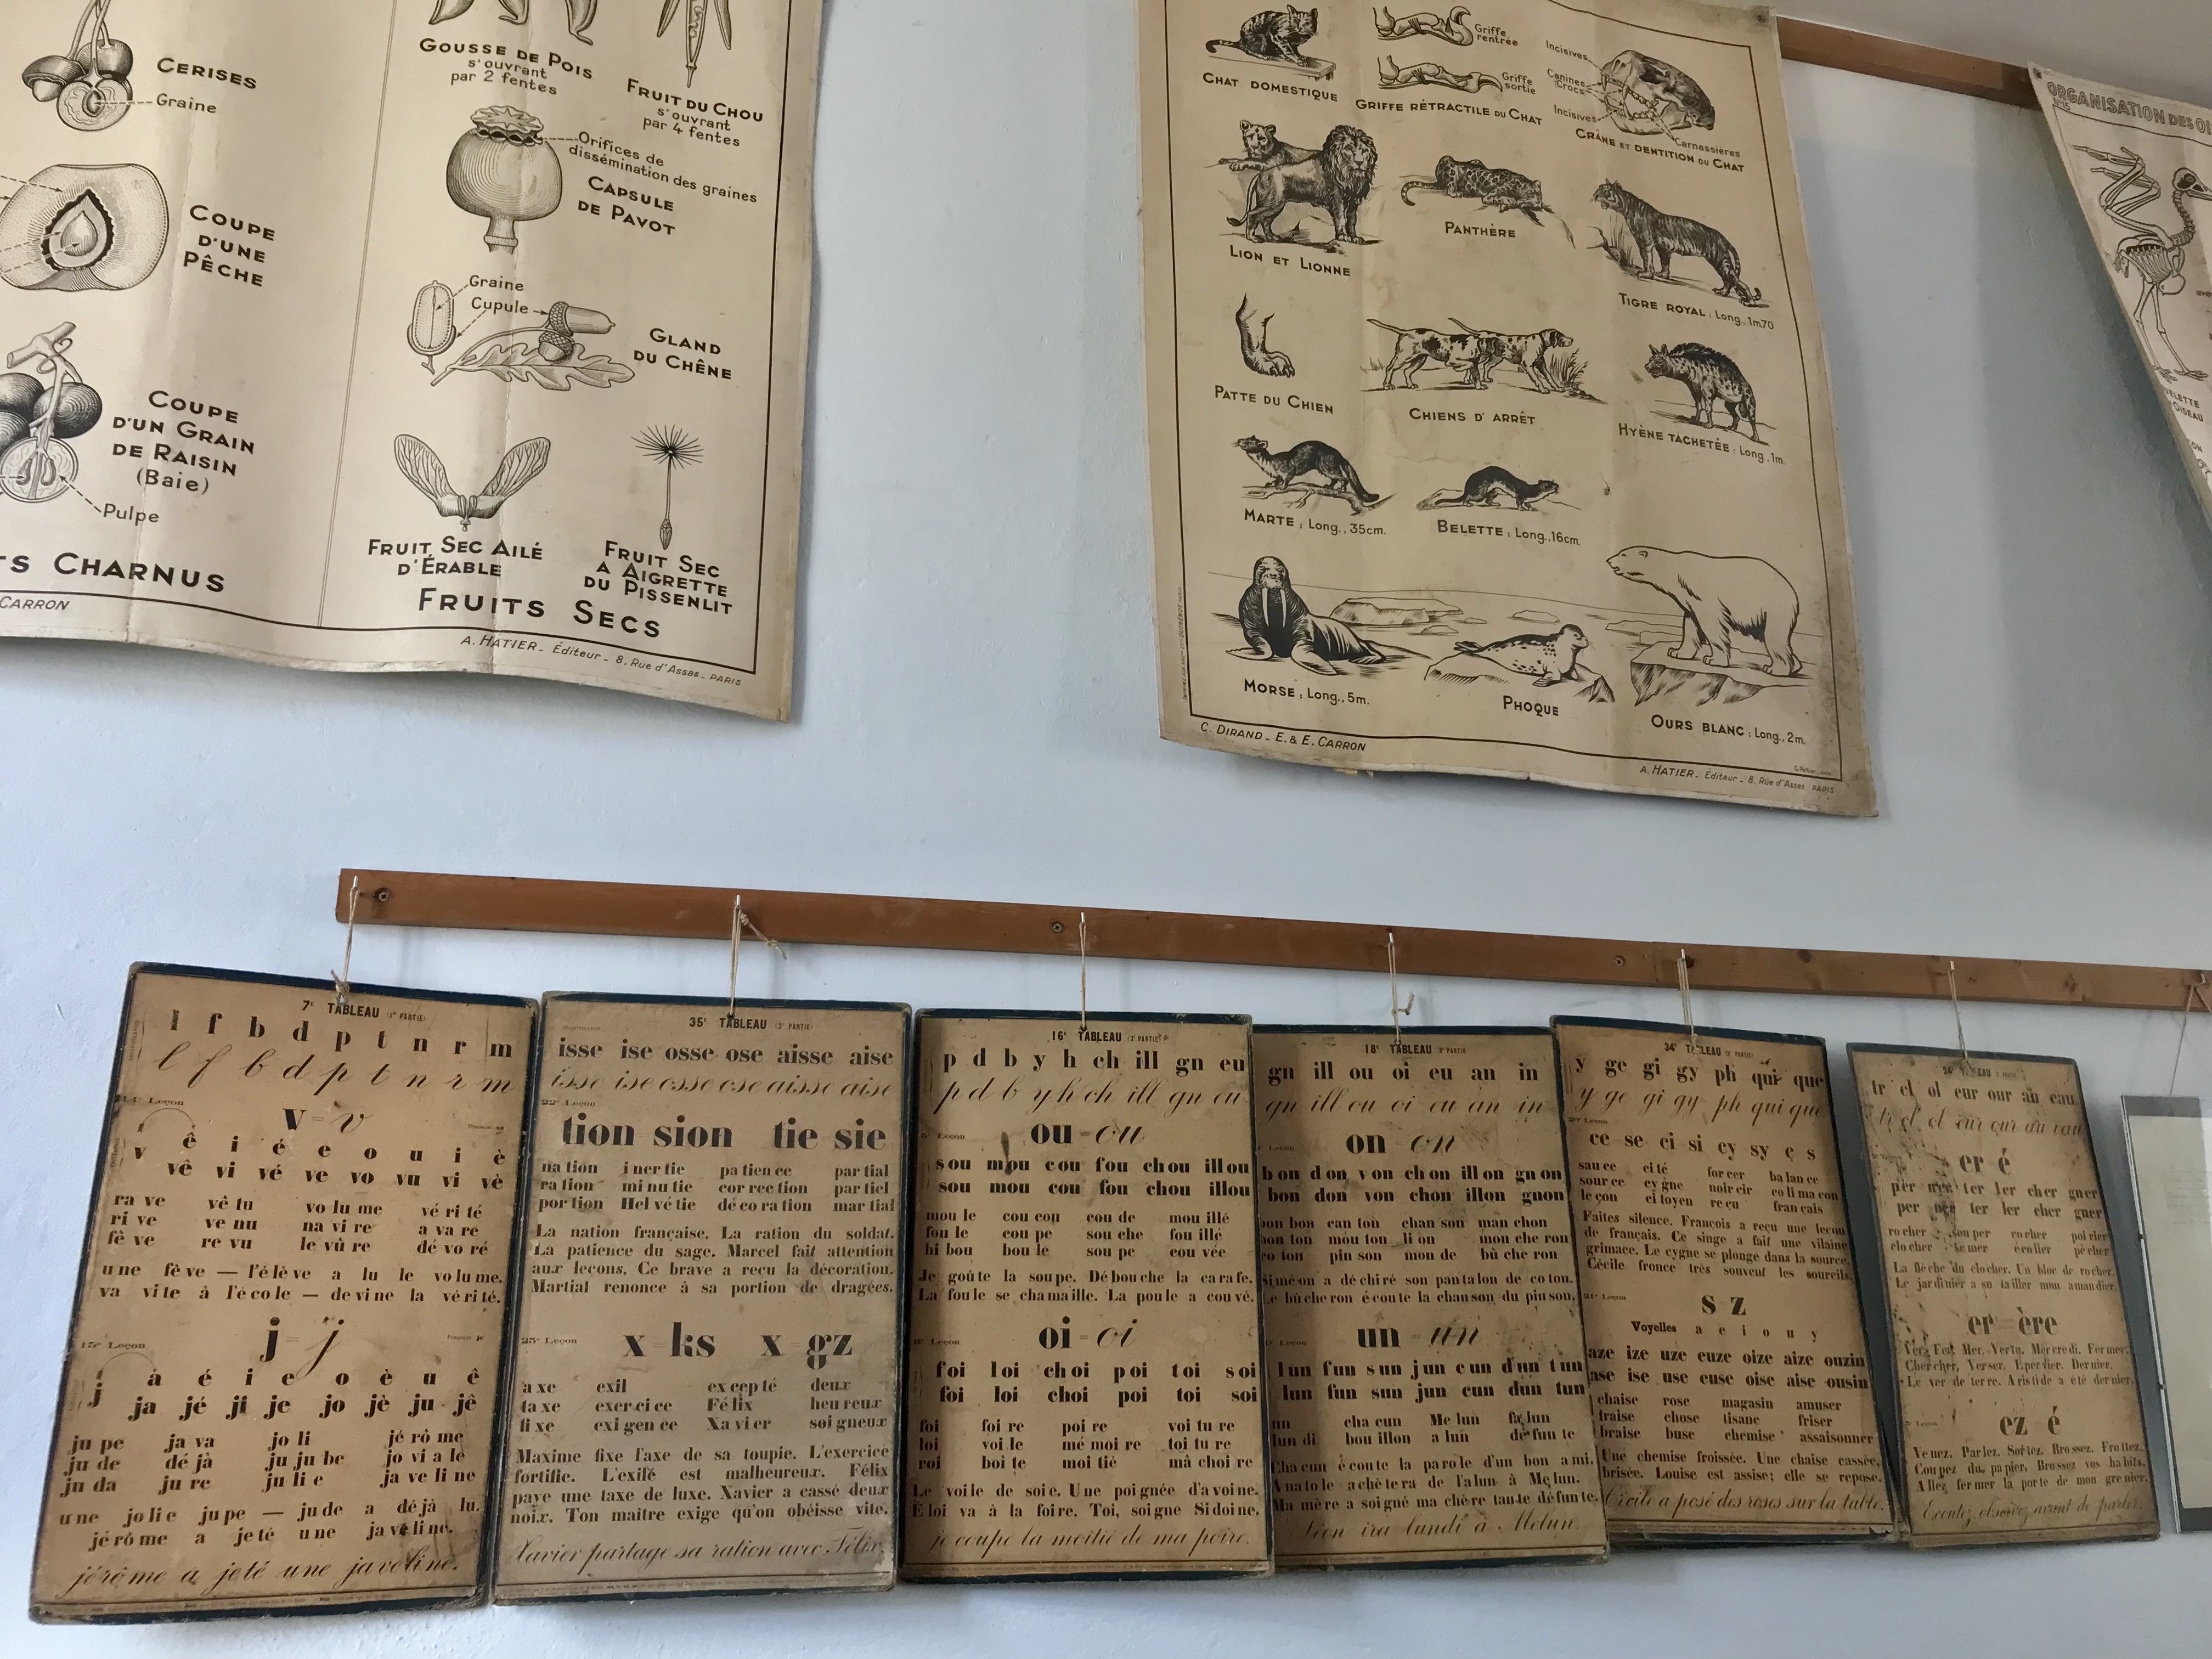 CERISES
Graine
COUPE
D'UNE
PÊCHE
COUPE
D'UN GRAIN
DE RAISIN
(Baie)
Pulpe
TS CHARNUS
CARRON
GOUSSE DE POIS
s'ouvrant
par 2 fentes
FRUIT DU CHOU
s'ouvrant
par 4 fentes
Orifices de
dissémination des graines
CAPSULE
DE PAVOT
Graine
Cupule
GLAND
DU CHÊNE
FRUIT SEC AILÉ
D'ÉRABLE
FRUIT SEC
A AIGRETTE
DU PISSENLIT
FRUITS SECS
A. HATIER - Éditeur - 8, Rue d'Assas - PARIS
CHAT DOMESTIQUE
Griffe
rentrée
Griffe
sortie
GRIFFE RÉTRACTILE DU CHAT
Incisives
Canines
Crocs
Incisives
Carnassières
CRÂNE ET DENTITION DU CHAT
LION ET LIONNE
PANTHÈRE
TIGRE ROYAL, Long., 1m70
PATTE DU CHIEN
CHIENS D'ARRÊT
HYÈNE TACHETÉE; Long., 1m.
MARTE; Long., 35cm.
BELETTE; Long., 16cm.
MORSE; Long., 5m.
PHOQUE
OURS BLANC; Long., 2m.
C. DIRAND - E. & E. CARRON
A. HATIER - Éditeur - 8, Rue d'Assas PARIS
ORGANISATION DES OI
N°15
7e TABLEAU (1re PARTIE)
l f b d p t n r m
l f b d p t n r m
14e Leçon
v = v
v ê i é e o u i è
vê vi vé ve vo vu vi vè
ra ve vê tu vo lu me vé ri té
ri ve ve nu na vi re a va re
fê ve re vu le vû re dé vo ré
u ne fê ve — l'é lè ve a lu le vo lu me.
va vi te à l'é co le — de vi ne la vé ri té.
15e Leçon
j = j
j á é i e o è u ê
ja jé ji je jo jè ju jê
ju pe ja va jo li jé rô me
ju de dé jà ju ju be jo vi a le
ju da ju re ju li e ja ve li ne
u ne jo li e ju pe — ju de a dé jà lu.
jé rô me a je té u ne ja ve li ne.
jérôme a jeté une javeline.
35e TABLEAU (2e PARTIE)
isse ise osse ose aisse aise
isse ise osse ose aisse aise
22e Leçon
tion sion tie sie
na tion i ner tie pa tien ce par tial
ra tion mi nu tie cor rec tion par tiel
por tion Hel vé tie dé co ra tion mar tial
La nation française. La ration du soldat.
La patience du sage. Marcel fait attention
aux leçons. Ce brave a reçu la décoration.
Martial renonce à sa portion de dragées.
25e Leçon
x = ks x = gz
a xe exil ex cep té deux
ta xe exer ci ce Fé lix heu reux
fi xe exi gen ce Xa vi er soi gneux
Maxime fixe l'axe de sa toupie. L'exercice
fortifie. L'exilé est malheureux. Félix
paye une taxe de luxe. Xavier a cassé deux
noix. Ton maître exige qu'on obéisse vite.
Xavier partage sa ration avec Félix.
16e TABLEAU (2e PARTIE)
p d b y h ch ill gn eu
p d b y h ch ill gn eu
Leçon
ou = ou
s ou m ou c ou f ou ch ou ill ou
sou mou cou fou chou illou
mou le cou cou cou de mou illé
fou le cou pe sou che fou illé
hi bou bou le sou pe cou vée
Je goû te la sou pe. Dé bou che la ca ra fe.
La fou le se cha maille. La pou le a cou vé.
Leçon
oi = oi
f oi l oi ch oi p oi t oi s oi
foi loi choi poi toi soi
foi foi re poi re voi tu re
loi voi le mé moi re toi tu re
roi boi te moi tié mâ choi re
Le voi le de soi e. U ne poi gnée d'a voi ne.
É loi va à la foi re. Toi, soi gne Si doi ne.
je coupe la moitié de ma poire.
18e TABLEAU 2e PARTIE
gn ill ou oi eu an in
gn ill ou oi eu an in
Leçon
on = on
b on d on v on ch on ill on gn on
bon don von chon illon gnon
bon bon can ton chan son man chon
bon ton mou ton li on mou che ron
co ton pin son mon de bû che ron
Si mé on a dé chi ré son pan ta lon de co ton.
Le bû che ron é cou te la chan son du pin son.
Leçon
un = un
l un f un s un j un c un d un t un
lun fun sun jun cun dun tun
un cha cun Me lun fa lun
lun di bou illon a lun dé fun te
Cha cun é cou te la pa ro le d'un bon a mi.
A na to le a chè te ra de l'a lun à Me lun.
Ma mè re a soi gné ma chè re tan te dé fun te.
Léon ira lundi à Melun.
34e TABLEAU (2e PARTIE)
y ge gi gy ph qui que
y ge gi gy ph qui que
20e Leçon
ce se ci si cy sy ç s
sau ce ci té for cer ba lan ce
sour ce cy gne noir cir co li ma çon
le çon ci toyen re çu fran çais
Faites silence. François a reçu une leçon
de français. Ce singe a fait une vilaine
grimace. Le cygne se plonge dans la source.
Cécile fronce très souvent les sourcils.
21e Leçon
s z
Voyelles a e i o u y
aze ize uze euze oize aize ouzin
ase ise use euse oise aise ousin
chaise rose magasin amuser
fraise chose tisane friser
braise buse chemise assaisonner
Une chemise froissée. Une chaise cassée,
brisée. Louise est assise; elle se repose.
Cécile a posé des roses sur la table.
24e TABLEAU
tr cl ol eur our au eau
er é
per ner ter ler cher gner
per ner ter ler cher gner
ro cher sou per co cher poi rier
clo cher se mer é co lier pê cher
La flè che du clo cher. Un bloc de ro cher.
Le jar di nier a su ta iller mon a man dier.
er = ère
Ver. Fer. Mer. Vertu. Mer cre di. Fer mer.
Cher cher. Ver ser. É per vier. Der nier.
Le ver de ter re. A ris ti de a é té der nier.
ez é
Ve nez. Par lez. Sor tez. Bros sez. Frot tez.
Cou pez du pa pier. Bros sez vos ha bits.
Al lez fer mer la por te de mon gre nier.
Écoutez, observez avant de parler.